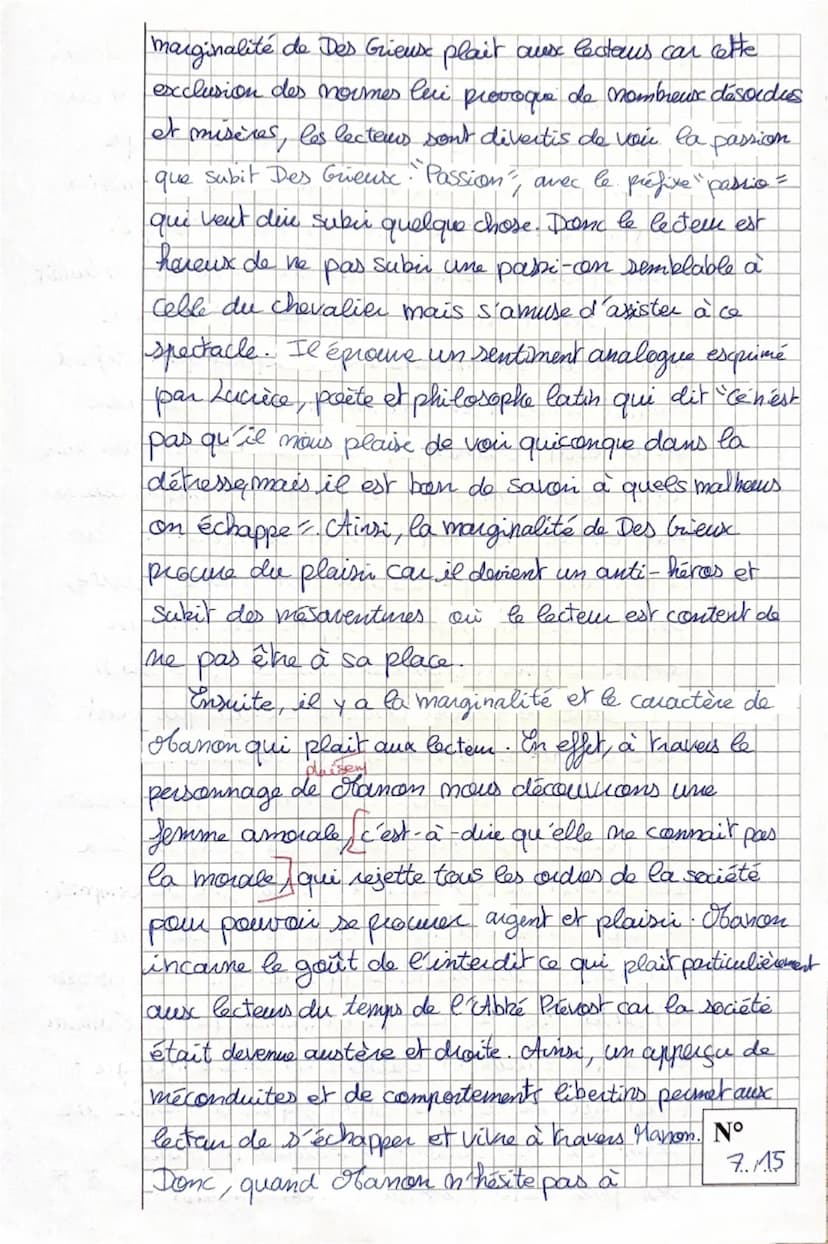 marginalité de Des Grieux plait aux lecteurs car cette
exclusion des normes lui provoque de nombreux désordres
et misères, les lecteurs sont divertis de voir la passion
que subit Des Grieux : "Passion", avec le préfixe "passio"
qui veut dire subir quelque chose. Donc le lecteur est
hereux de ne pas subir une passi-on semblable à
celle du chevalier mais s'amuse d'assister à ce
spectacle. Il éprouve un sentiment analogue exprimé
par Lucrèce, poète et philosophe latin qui dit "Ce n'est
pas qu'il nous plaise de voir quiconque dans la
détresse, mais il est bon de savoir à quels malheurs
on échappe". Ainsi, la marginalité de Des Grieux
procure du plaisir car il devient un anti-héros et
subit des mésaventures où le lecteur est content de
ne pas être à sa place.
Ensuite, il y a la marginalité et le caractère de
Manon qui plait aux lecteur. En effet, à travers le
plaisent
personnage de Manon nous découvrons une
femme amorale, [c'est-à-dire qu'elle ne connait pas
la morale,] qui rejette tous les ordres de la société
pour pouvoir se procurer argent et plaisir. Manon
incarne le goût de l'interdit ce qui plait particulièrement
aux lecteurs du temps de l'Abbé Prévost car la société
était devenue austère et droite. Ainsi, un apperçu de
méconduites et de comportements libertins permet aux
lecteur de s'échapper et vivre à travers Manon.
Donc, quand Manon n'hésite pas à
N°
7../15